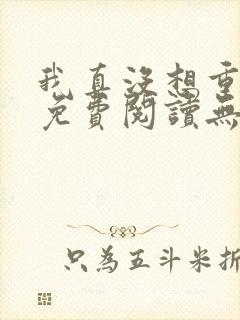 我真沒想重
免費閱讀無
只為五斗米折